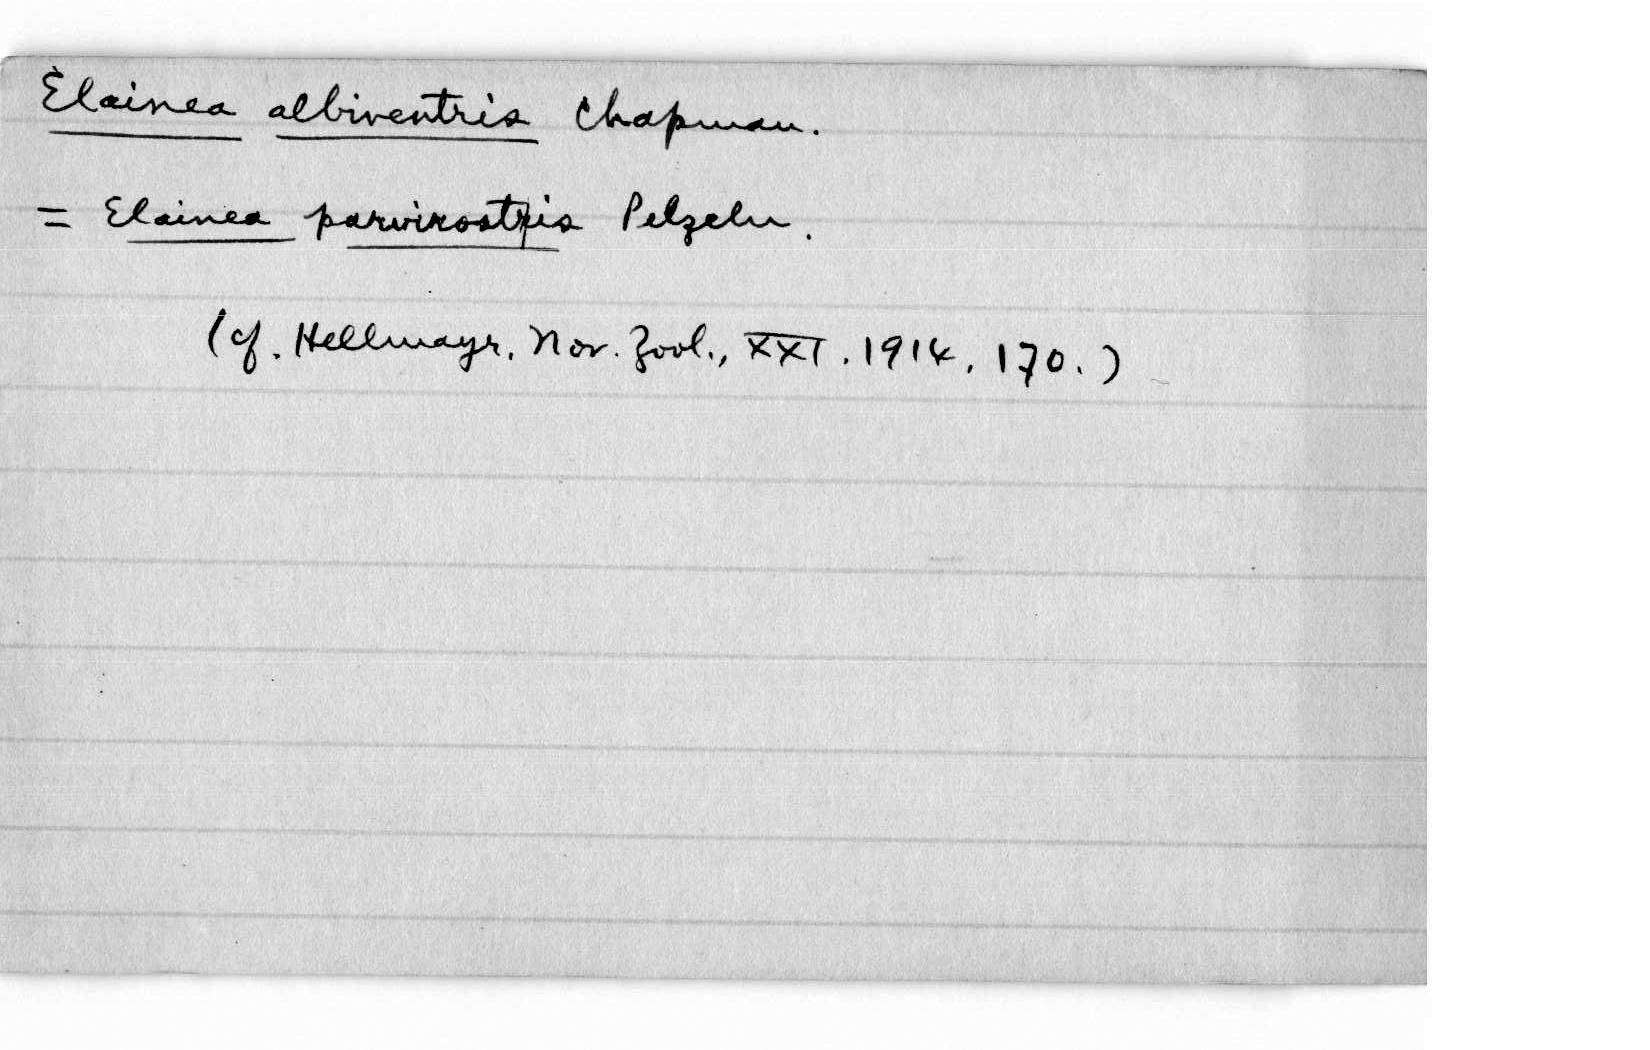 Elainea albiventris Chapman.
= Elainea parvirostris Pelzeln.
(cf. Hellmayr, Nov. Zool., XXI. 1914, 170.)